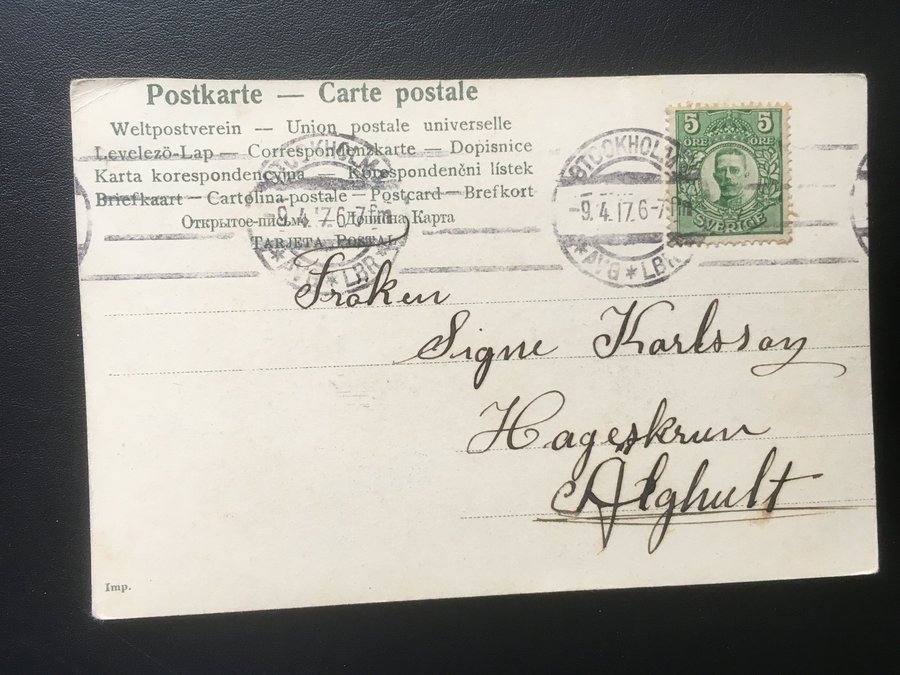 Postkarte — Carte postale
Weltpostverein — Union postale universelle
Levelező-Lap — Correspondenzkarte — Dopisnice
Karta korespondencyjna — Korespondenční lístek
Briefkaart — Cartolina-postale — Postcard — Brefkort
Открытое-письмо — Дописна Карта
TARJETA POSTAL
STOCKHOLM
-9.4.17.6-7 fm
*AVG*LBR*
STOCKHOLM
-9.4.17.6-7 fm
*AVG*LBR
5 5
ÖRE ÖRE
SVERIGE
Fröken
Signe Karlsson
Hageskrun
Älghult
Imp.